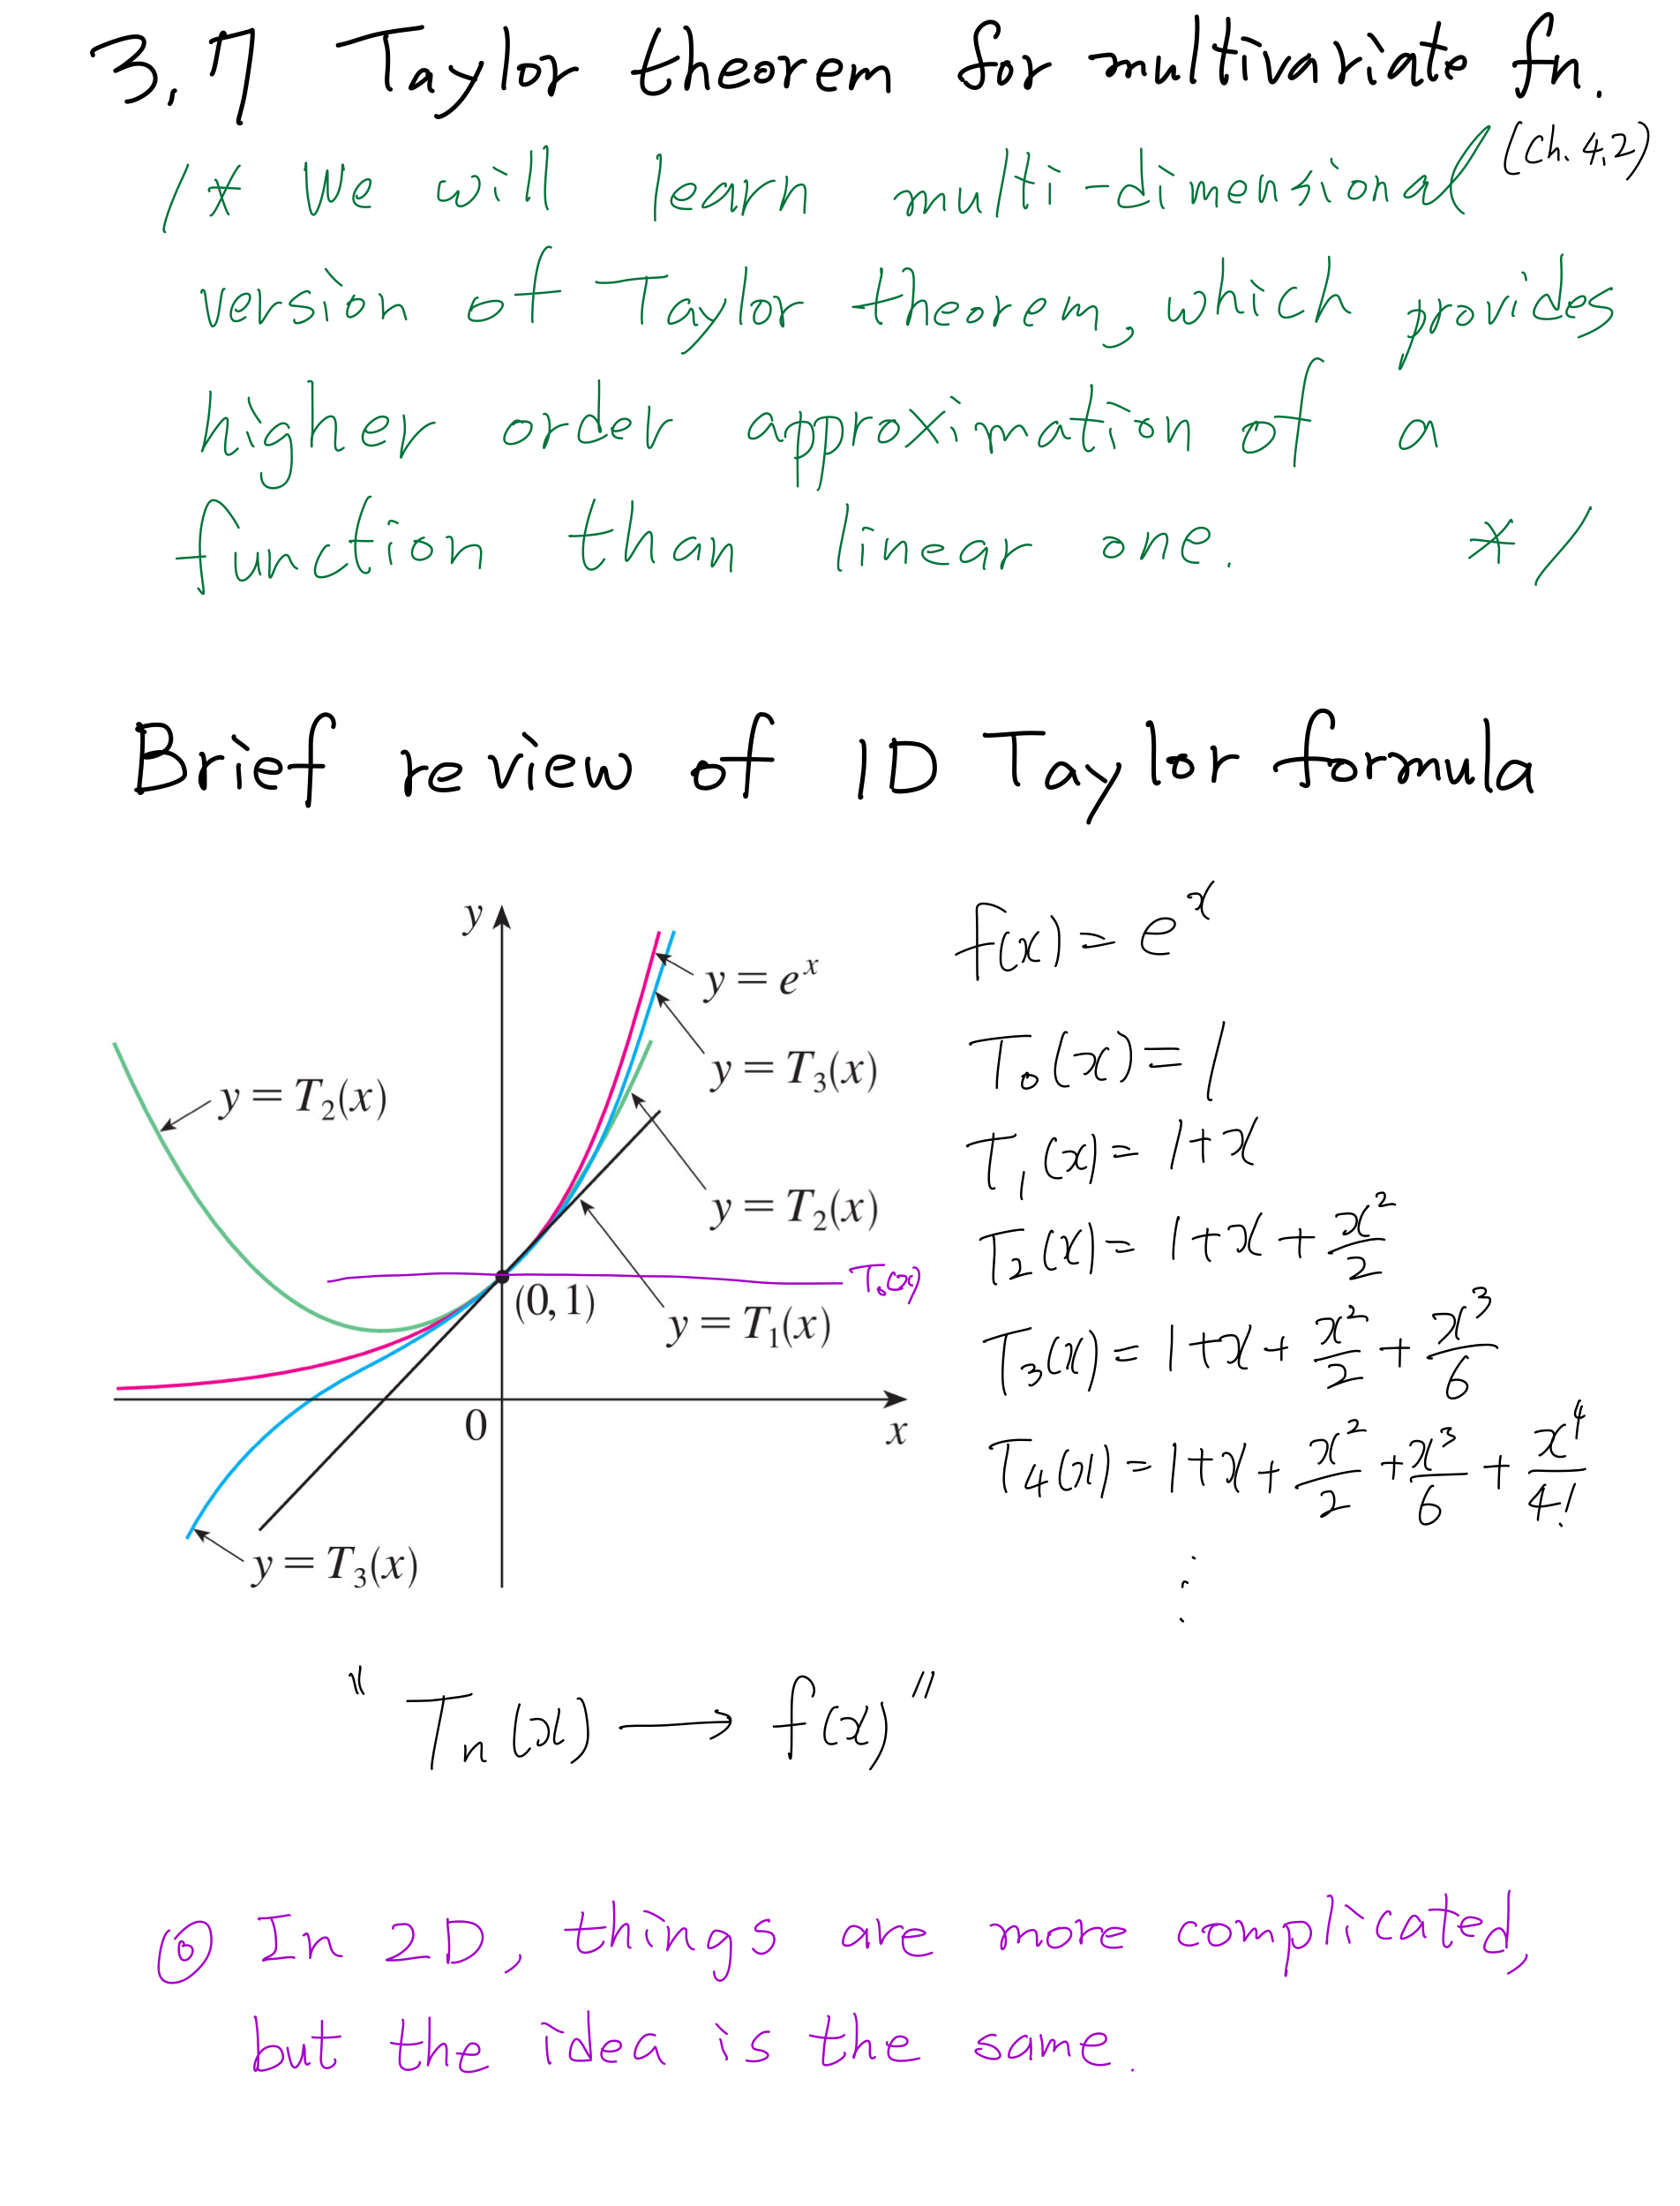 3.7 Taylor theorem for multivariate fn.
(ch. 4.2)
/* We will learn multi-dimensional
version of Taylor theorem, which provides
higher order approximation of a
function than linear one. */
Brief review of 1D Taylor formula
y
y = e^x
y = T₃(x)
y = T₂(x)
y = T₂(x)
T₀(x)
(0, 1)
y = T₁(x)
0
x
y = T₃(x)
f(x) = e^x
T₀(x) = 1
T₁(x) = 1+x
T₂(x) = 1+x+x²/2
T₃(x) = 1+x+x²/2+x³/6
T₄(x) = 1+x+x²/2+x³/6+x⁴/4!
⋮
"Tₙ(x) ⟶ f(x)"
◎ In 2D, things are more complicated,
but the idea is the same.